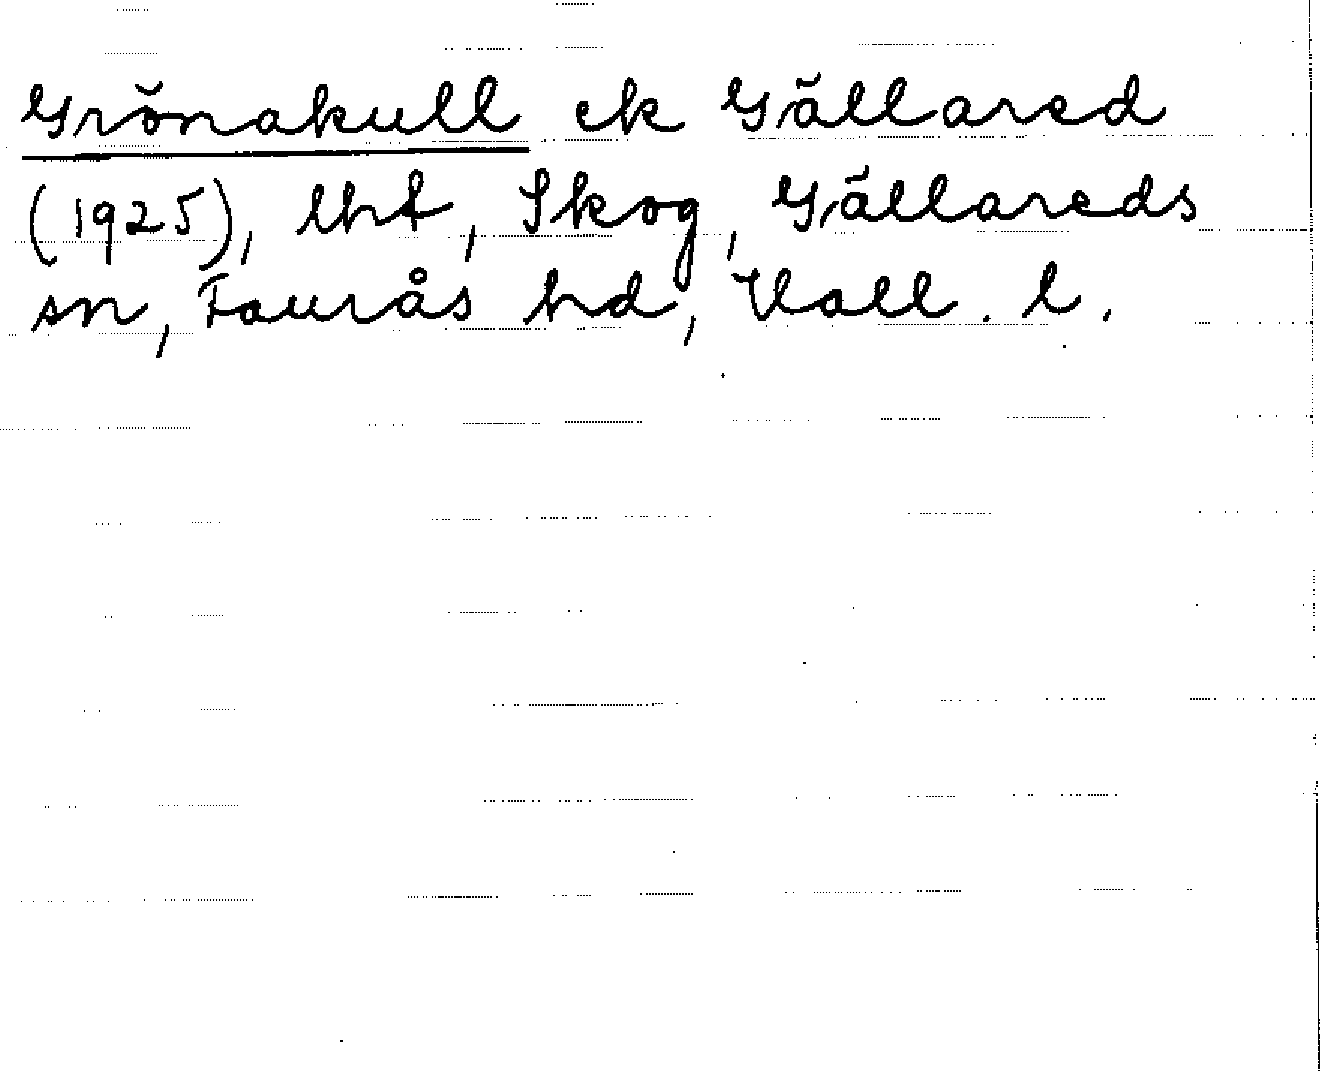 Grönakull ek Gällared
(1925), lht, Skog, Gällareds
sn, Faurås hd, Hall. l.